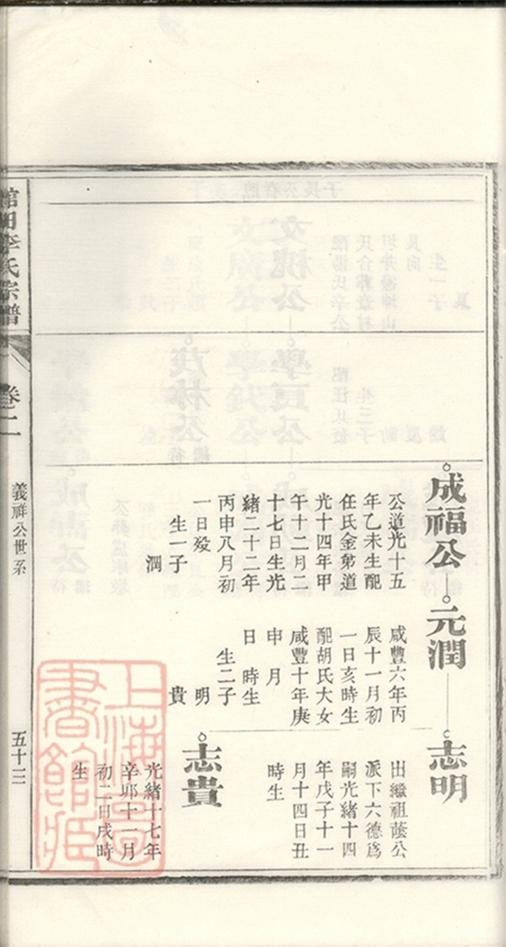 成福公
公道光十五
年乙未生配
任氏金弟道
光十四年甲
午十二月二
十七日生光
緒二十二年
丙申八月初
一日歿
生一子
潤
元潤
咸豐六年丙
辰十一月初
一日亥時生
配胡氏大女
咸豐十年庚
申 月
日 時生
生二子
明
貴
志明
出繼祖蔭公
派下六德為
嗣光緒十四
年戊子十一
月十四日丑
時生
志貴
光緒十七年
辛卯十一月
初二日戌時
生
館田李氏宗譜
卷二
義祥公世系
五十三
上海圖書館藏